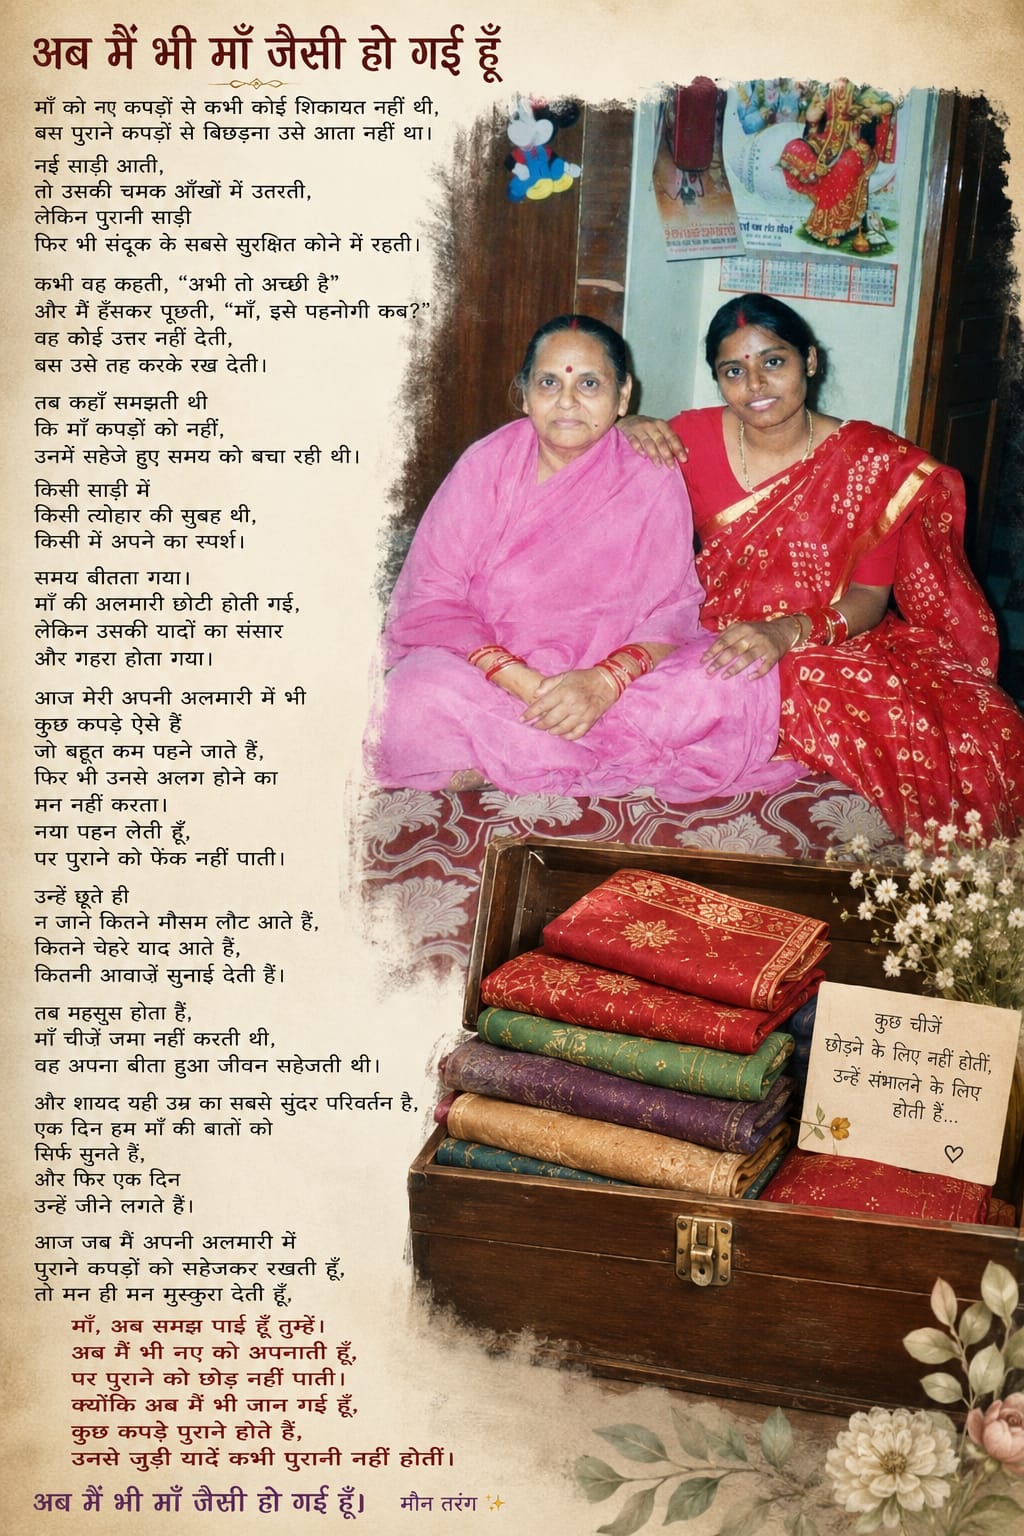 अब मैं भी माँ जैसी हो गई हूँ
माँ को नए कपड़ों से कभी कोई शिकायत नहीं थी,
बस पुराने कपड़ों से बिछड़ना उसे आता नहीं था।
नई साड़ी आती,
तो उसकी चमक आँखों में उतरती,
लेकिन पुरानी साड़ी
फिर भी संदूक के सबसे सुरक्षित कोने में रहती।
कभी वह कहती, “अभी तो अच्छी है”
और मैं हँसकर पूछती, “माँ, इसे पहनोगी कब?”
वह कोई उत्तर नहीं देती,
बस उसे तह करके रख देती।
तब कहाँ समझती थी
कि माँ कपड़ों को नहीं,
उनमें सहेजे हुए समय को बचा रही थी।
किसी साड़ी में
किसी त्योहार की सुबह थी,
किसी में अपने का स्पर्श।
समय बीतता गया।
माँ की अलमारी छोटी होती गई,
लेकिन उसकी यादों का संसार
और गहरा होता गया।
आज मेरी अपनी अलमारी में भी
कुछ कपड़े ऐसे हैं
जो बहूत कम पहने जाते हैं,
फिर भी उनसे अलग होने का
मन नहीं करता।
नया पहन लेती हूँ,
पर पुराने को फेंक नहीं पाती।
उन्हें छूते ही
न जाने कितने मौसम लौट आते हैं,
कितने चेहरे याद आते हैं,
कितनी आवाज़ें सुनाई देती हैं।
तब महसुस होता हैं,
माँ चीज़ें जमा नहीं करती थी,
वह अपना बीता हुआ जीवन सहेजती थी।
और शायद यही उम्र का सबसे सुंदर परिवर्तन है,
एक दिन हम माँ की बातों को
सिर्फ सुनते हैं,
और फिर एक दिन
उन्हें जीने लगते हैं।
आज जब मैं अपनी अलमारी में
पुराने कपड़ों को सहेजकर रखती हूँ,
तो मन ही मन मुस्कुरा देती हूँ,
माँ, अब समझ पाई हूँ तुम्हें।
अब मैं भी नए को अपनाती हूँ,
पर पुराने को छोड़ नहीं पाती।
क्योंकि अब मैं भी जान गई हूँ,
कुछ कपड़े पुराने होते हैं,
उनसे जुड़ी यादें कभी पुरानी नहीं होतीं।
अब मैं भी माँ जैसी हो गई हूँ।
मौन तरंग
कुछ चीजें
छोड़ने के लिए नहीं होतीं,
उन्हें संभालने के लिए
होती हैं...